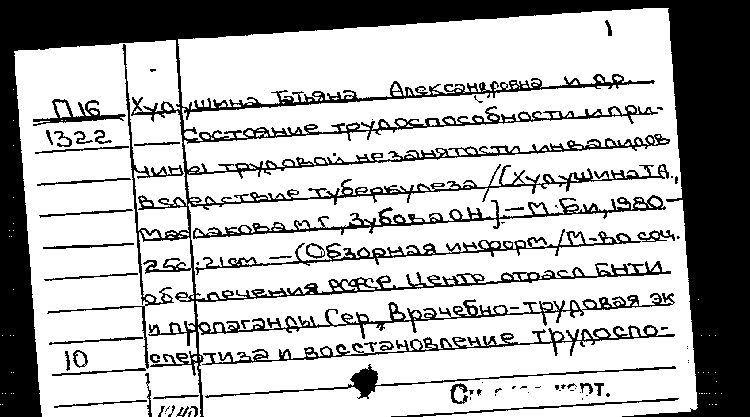 1
П16 Худушина Татьяна Александровна и др.
1322 Состояние трудоспособности и при-
чины трудовой незанятости инвалидов
вследствие туберкулеза / [Худушина Т.А.,
Маслакова М.Г., Зубова О.Н.]. — М: Б.и, 1980. —
25с; 21см. — (Обзорная информ. / М-во соц.
обеспечения РСФСР. Центр. отрасл БНТИ
и пропаганды Сер. „Врачебно-трудовая эк
10 спертиза и восстановление трудоспо-